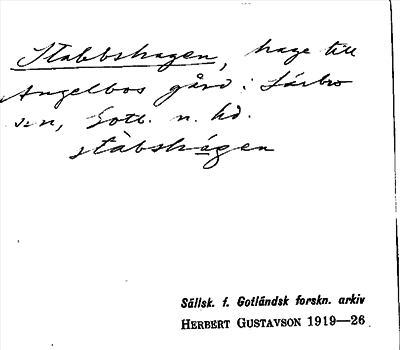 Stabbshagen, hage till
Angelbos gård i Lärbro
sn, Gotl. n. hd.
stàbshágen
Sällsk. f. Gotländsk forskn. arkiv
HERBERT GUSTAVSON 1919—26